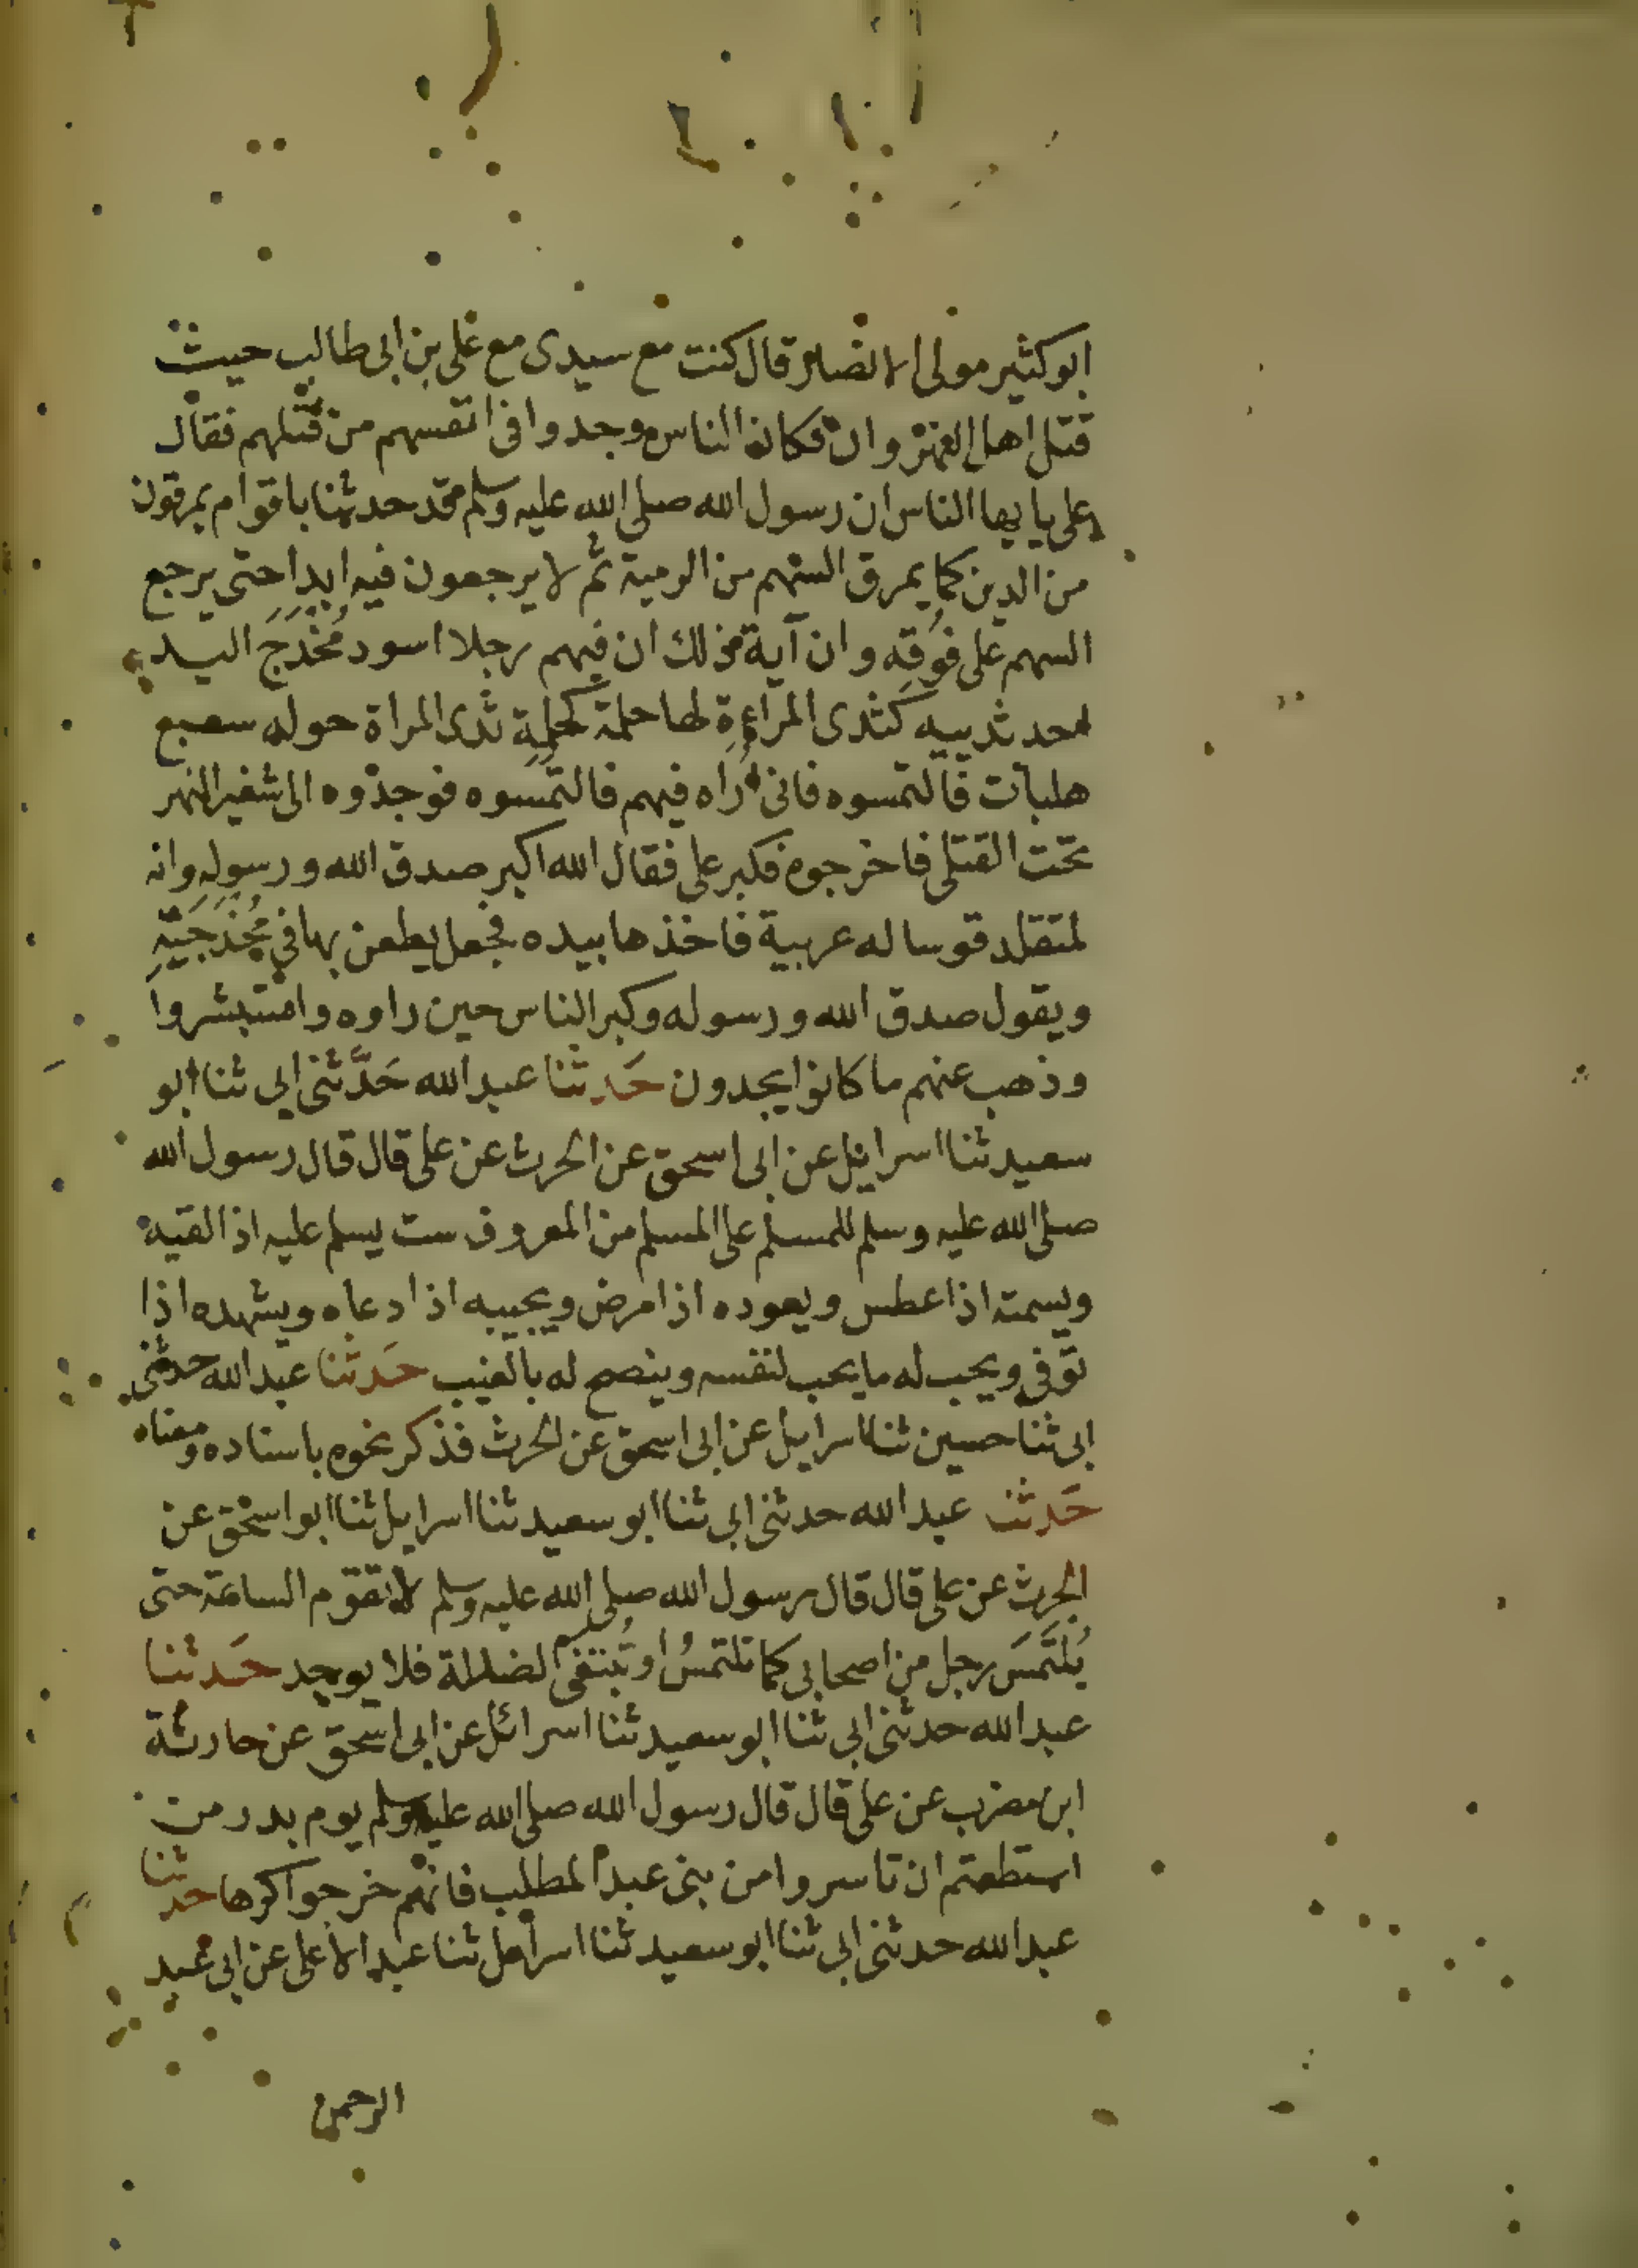 ابو كثير مولى الانصار قال كنت مع سيدى مع على بن ابى طالب حيث
قتل اهل النهروان فكان الناس وجدوا فى انفسهم من قتلهم فقال
على يا يها الناس ان رسول الله صلى الله عليه وسلم قد حدثنا باقوام يمرقون
من الدين كما يمرق السهم من الرمية ثم لا يرجعون فيه ابدا حتى يرجع
السهم على فُوقِه وان آية ذلك ان فيهم رجلا اسود مُخْدَجَ اليد
احد ثدييه كثدى المراءة لها حلمة كحلمة ثدى المراة حوله سبع
هلبات فالتمسوه فانى اُراه فيهم فالتمسوه فوجدوه الى شفير النهر
تحت القتلى فاخرجوه فكبر على فقال الله اكبر صدق الله ورسوله وانه
لمتقلد قوسا له عربية فاخذها بيده فجعل يطعن بها في مُخْدَجَيَّتِهِ
ويقول صدق الله ورسوله وكبر الناس حين راوه واستبشروا
وذهب عنهم ما كانوا يجدون حَدثنا عبد الله حَدَّثنى ابى ثنا ابو
سعيد ثنا اسرائيل عن ابى اسحق عن الحرث عن على قال قال رسول الله
صلى الله عليه وسلم للمسلم على المسلم من المعروف ست يسلم عليه اذا لقيه
ويسمته اذا عطس ويعوده اذا مرض ويجيبه اذا دعاه ويشهده اذا
توفى ويحب له ما يحب لنفسه وينصح له بالغيب حَدثنا عبد الله حدثنى
ابى ثنا حسين ثنا اسراييل عن ابى اسحق عن الحرث فذكر نحوه باسناده ومعناه
حَدثنا عبد الله حدثنى ابى ثنا ابو سعيد ثنا اسراييل ثنا ابو اسحق عن
الحرث عن على قال قال رسول الله صلى الله عليه وسلم لا تقوم الساعة حتى
يُلتَمَسَ رجل من اصحابى كما تلتمسُ او تُبتغى الضالة فلا يوجد حَدثنا
عبد الله حدثنى ابى ثنا ابو سعيد ثنا اسرائل عن ابى اسحق عن حارثة
ابن مضرب عن على قال قال رسول الله صلى الله عليه وسلم يوم بدر من
استطعتم ان تاسروا من بنى عبد المطلب فانهم خرجوا كرها حدثنا
عبد الله حدثنى ابى ثنا ابو سعيد ثنا اسرائل ثنا عبد الاعلى عن ابى عبد
الرحمن